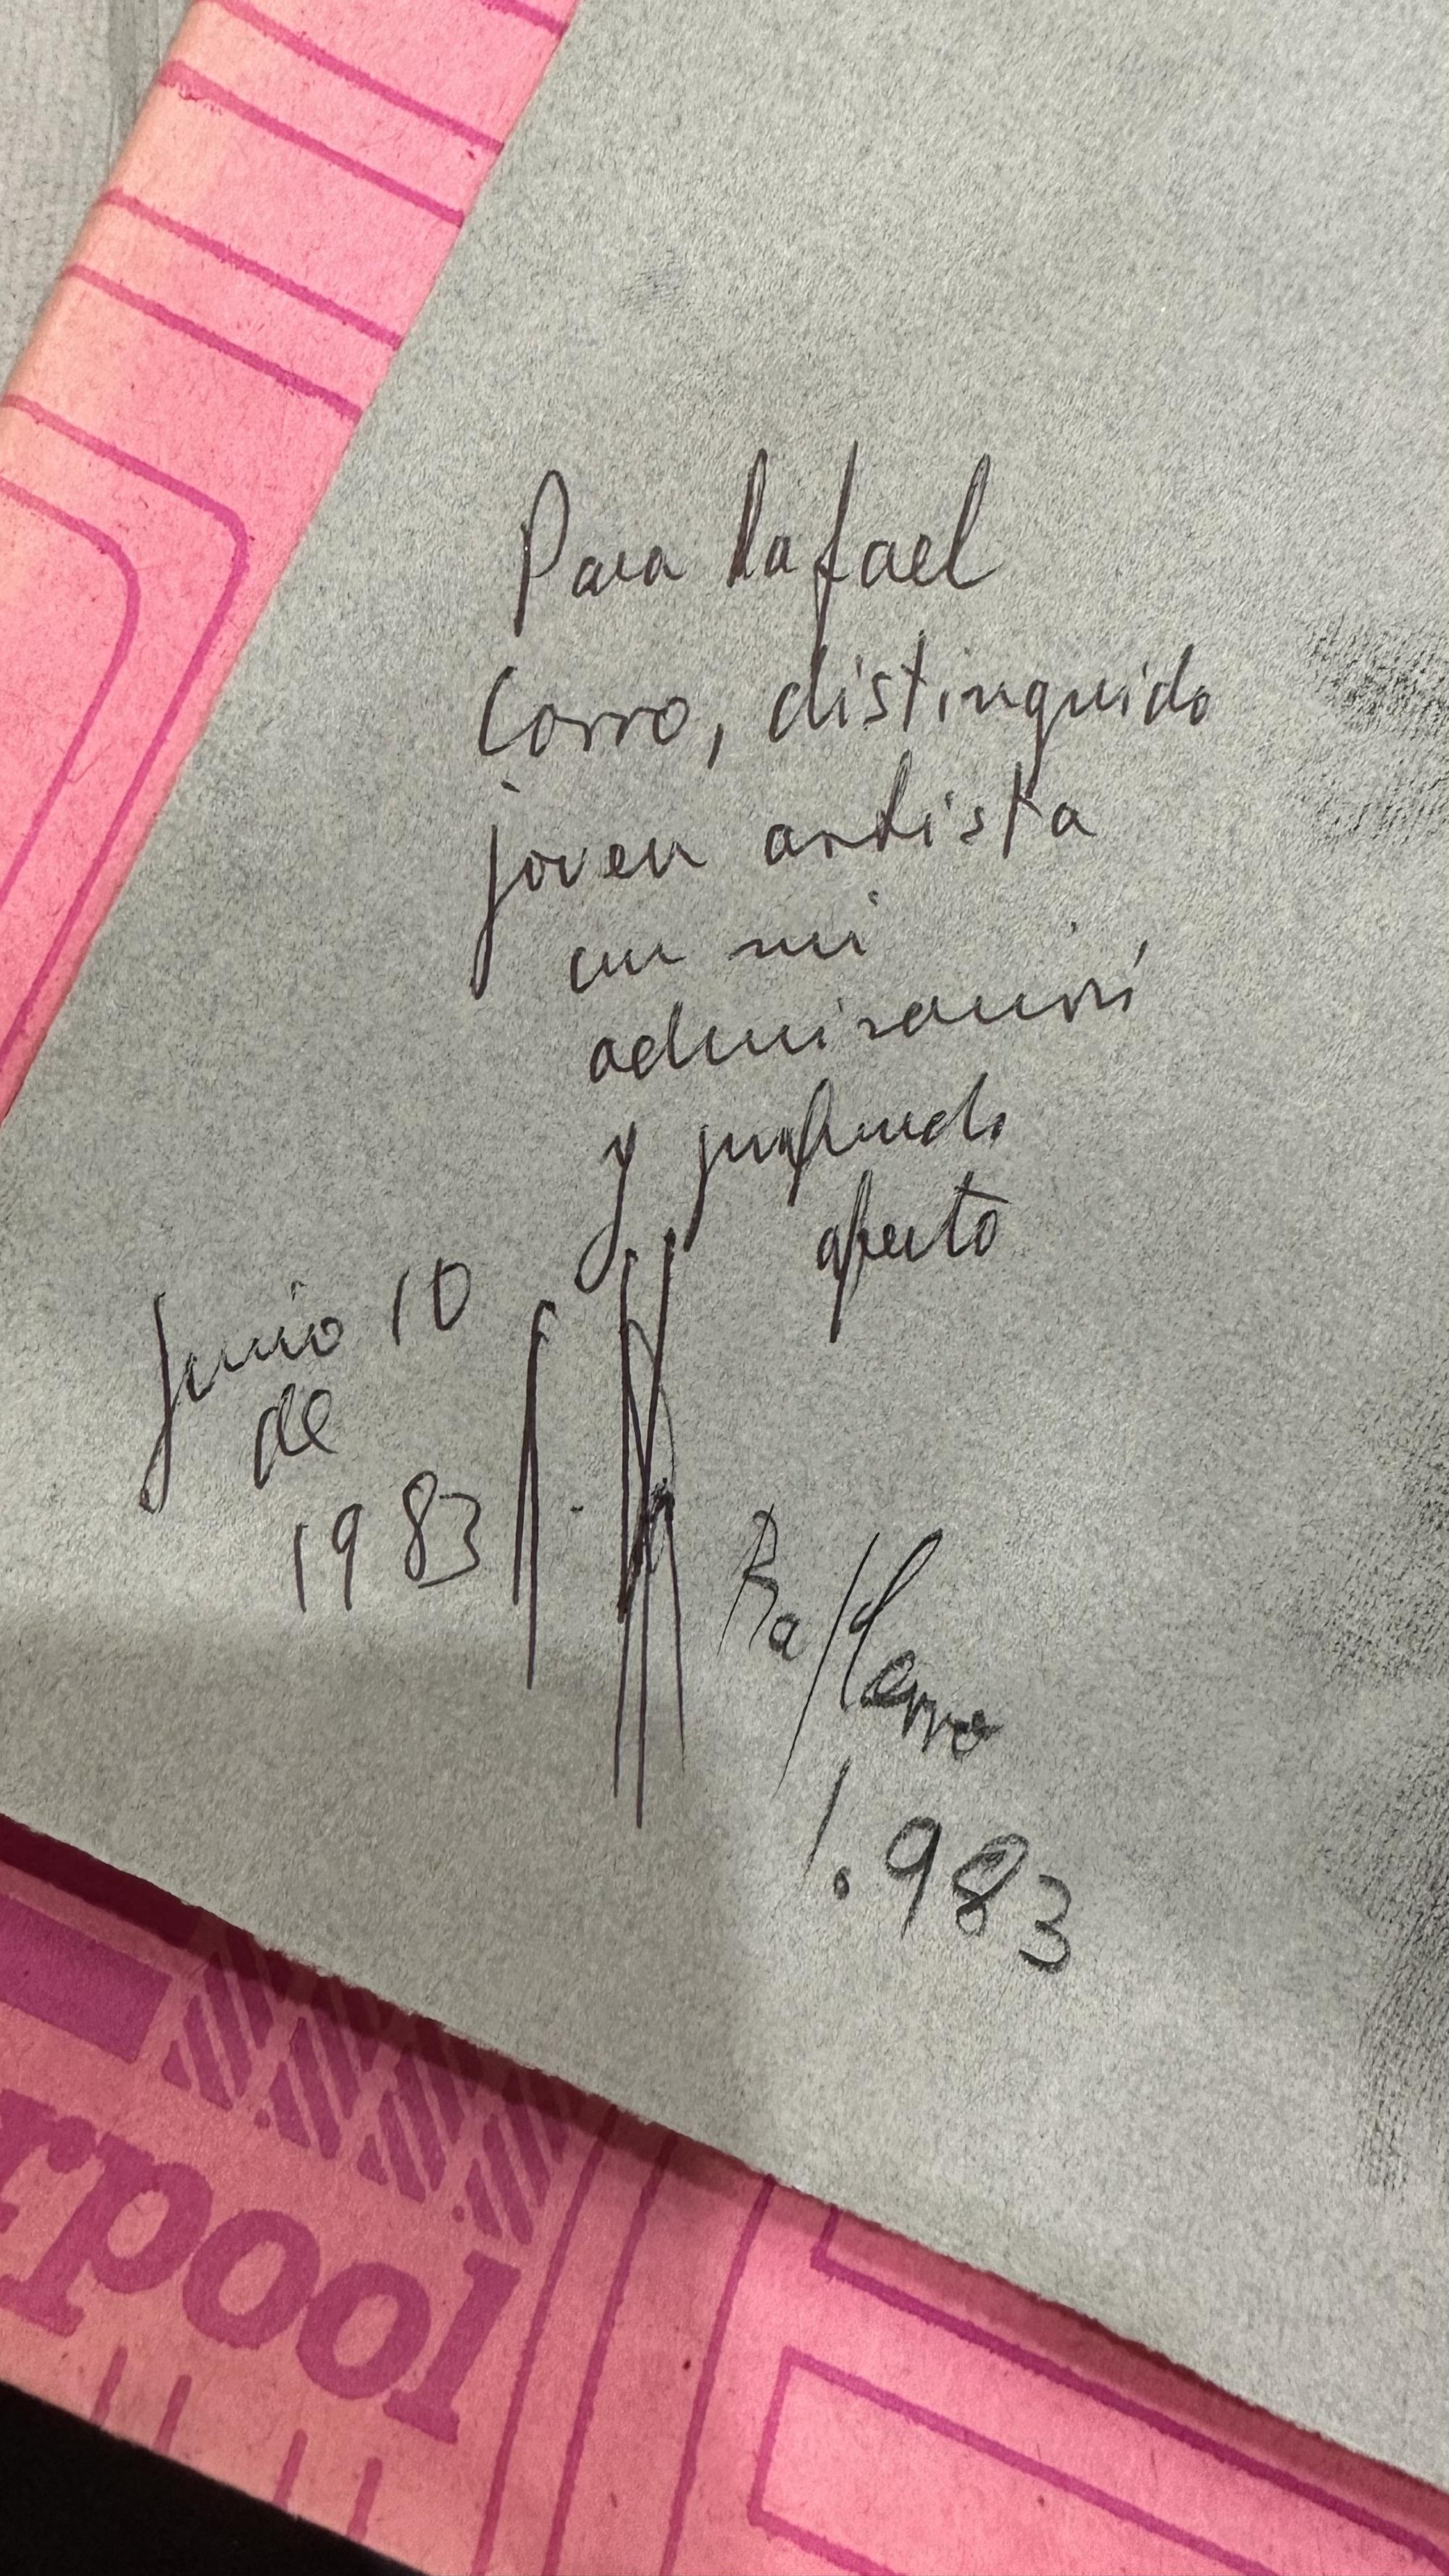 Para Rafael
Corro, distinguido
joven artista
con mi
admiración
y profundo
afecto
Junio 10
de
1983
Raf Corro
1.983
rpool